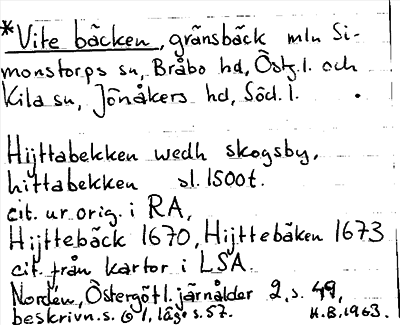 *Vite bäcken, gränsbäck mln Si-
monstorps sn, Bråbo hd, Östg.l. och
Kila sn, Jönåkers hd, Söd.l.
Hijttabekken wedh skogsby,
hittabekken sl. 1500t.
cit. ur orig. i RA,
Hijttebäck 1670, Hijttebäken 1673
cit. från kartor i LSA.
Nordén, Östergötl. järnålder 2, s. 49,
beskrivn. s. 1, läge s. 57.
H.B. 1963.